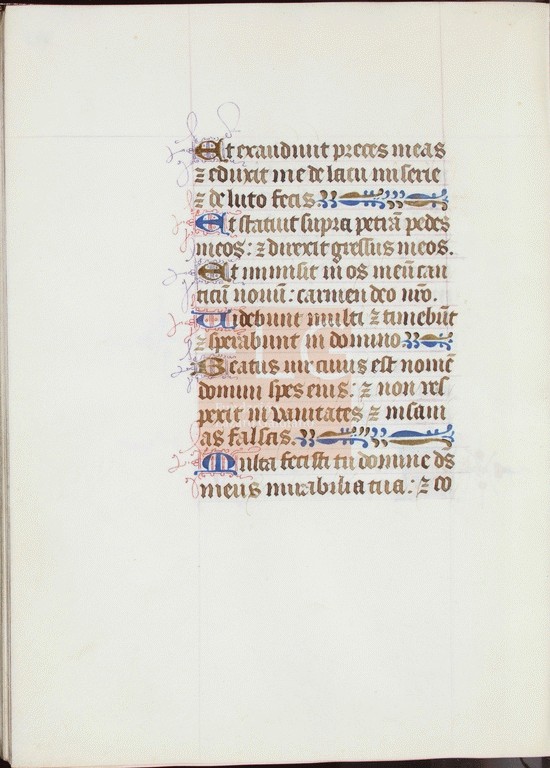 Et exaudiuit preces meas
⁊ eduxit me de lacu miserie
⁊ de luto fecis.
Et statuit supra petrā pedes
meos: ⁊ direxit gressus meos.
Et inmisit in os meū can
ticū nouū: carmen deo nr̄o.
Uidebunt multi ⁊ timebūt
⁊ sperabunt in domino
Beatus uir cuius est nomē
domini spes eius: ⁊ non res
pexit in vanitates ⁊ insani
as falsas.
Multa fecisti tu domine ds̄
meus mirabilia tua: ⁊ co